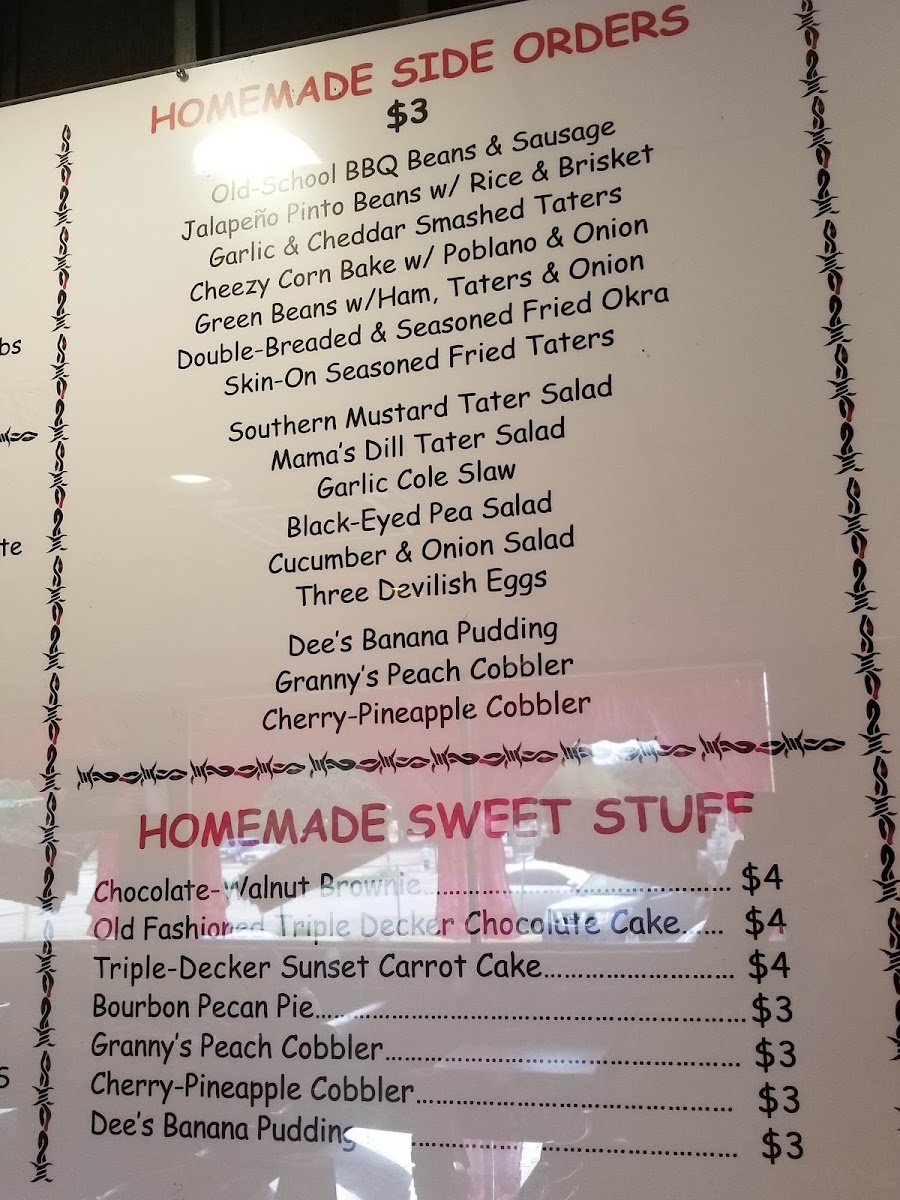 HOMEMADE SIDE ORDERS
$3
Old-School BBQ Beans & Sausage
Jalapeño Pinto Beans w/ Rice & Brisket
Garlic & Cheddar Smashed Taters
Cheezy Corn Bake w/ Poblano & Onion
Green Beans w/Ham, Taters & Onion
Double-Breaded & Seasoned Fried Okra
Skin-On Seasoned Fried Taters
Southern Mustard Tater Salad
Mama's Dill Tater Salad
Garlic Cole Slaw
Black-Eyed Pea Salad
Cucumber & Onion Salad
Three Devilish Eggs
Dee's Banana Pudding
Granny's Peach Cobbler
Cherry-Pineapple Cobbler
HOMEMADE SWEET STUFF
Chocolate-Walnut Brownie.................................... $4
Old Fashioned Triple Decker Chocolate Cake...... $4
Triple-Decker Sunset Carrot Cake........................... $4
Bourbon Pecan Pie............................................................ $3
Granny's Peach Cobbler................................................. $3
Cherry-Pineapple Cobbler............................................ $3
Dee's Banana Pudding.................................................... $3